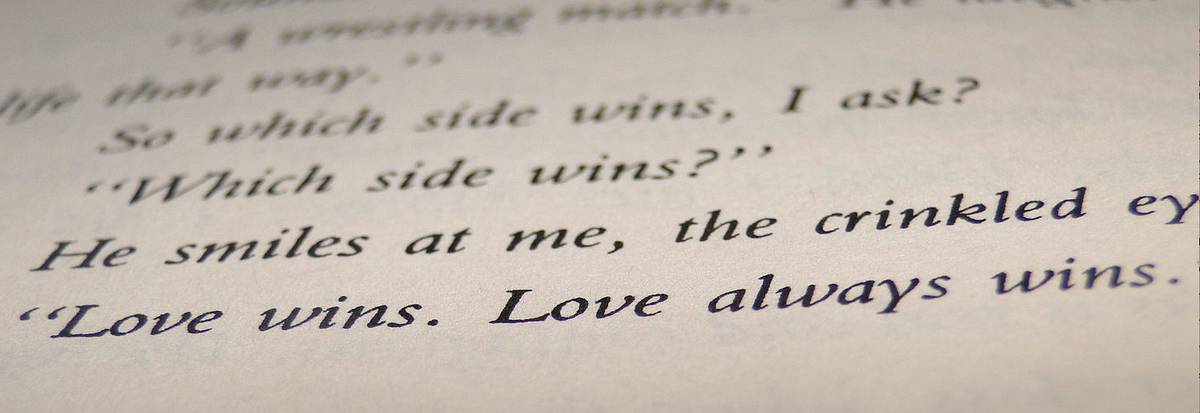 “A wrestling match.” He
life that way.”
So which side wins, I ask?
“Which side wins?”
He smiles at me, the crinkled ey
“Love wins. Love always wins.